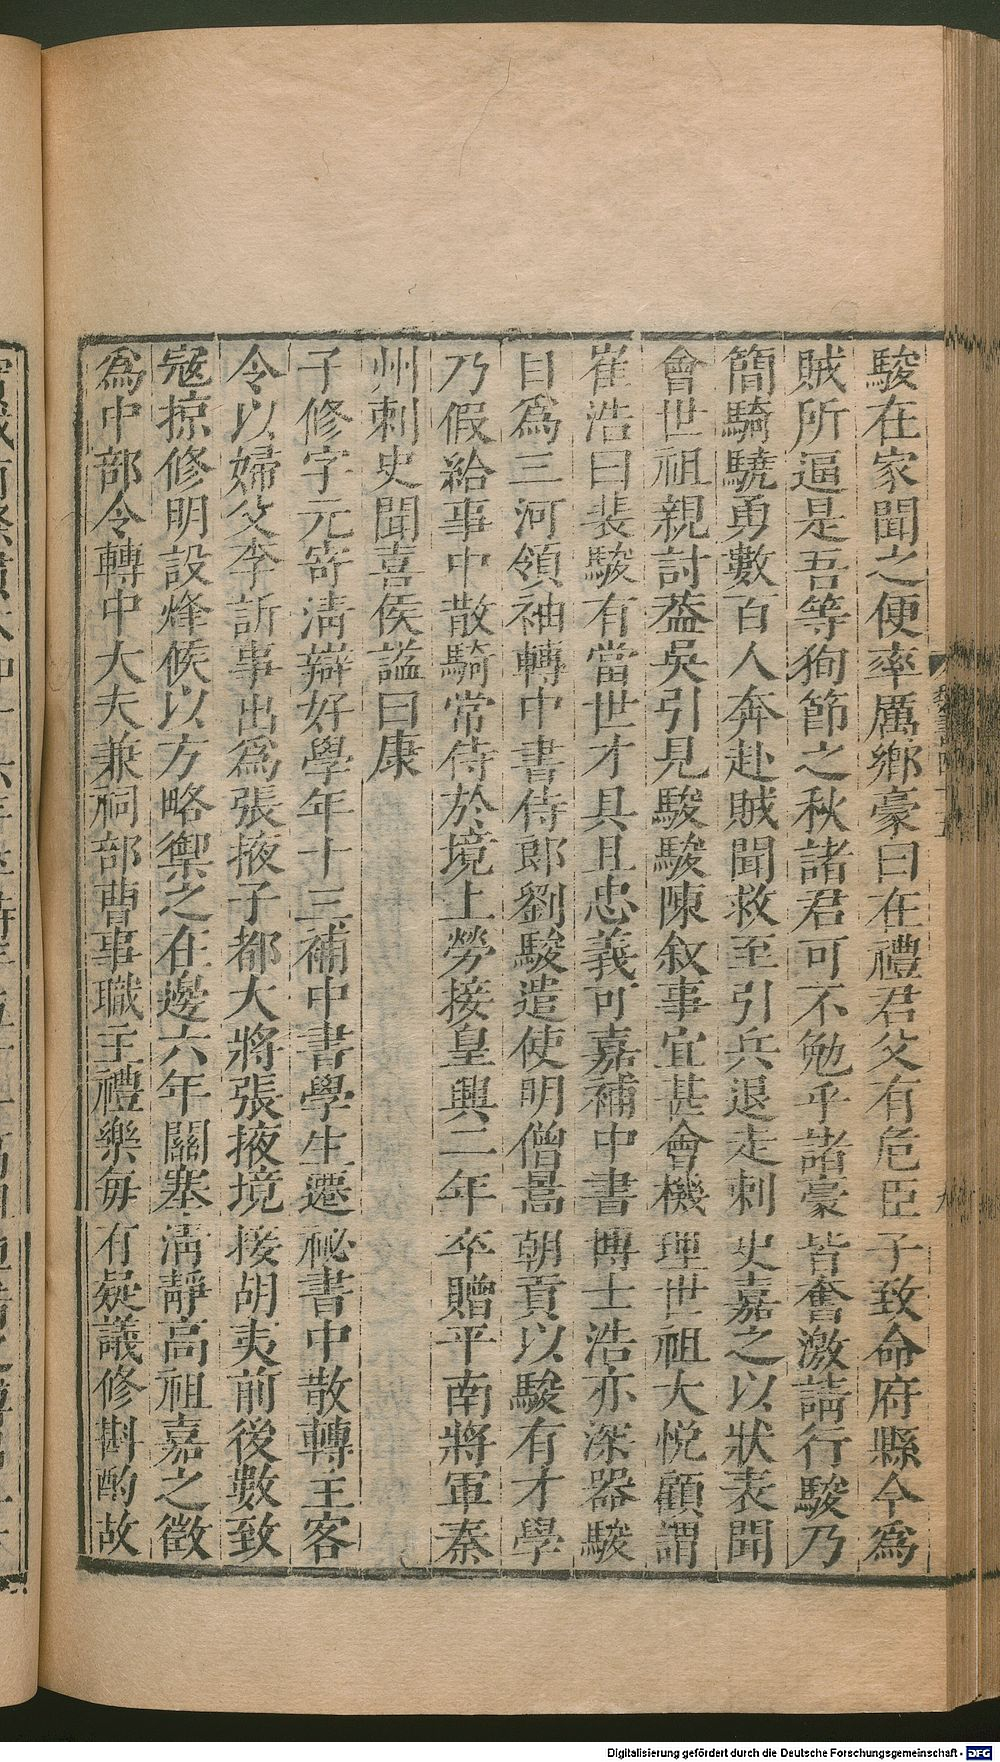 駿在家聞之便率厲鄉豪曰在禮君父有危臣子致命府縣今爲
賊所逼是吾等狥節之秋諸君可不勉乎諸豪皆奮激請行駿乃
簡騎驍勇數百人奔赴賊聞救至引兵退走刺史嘉之以狀表聞
會世祖親討蓋吳引見駿駿陳叙事宜甚會機理世祖大悅顧謂
崔浩曰裴駿有當世才具且忠義可嘉補中書博士浩亦深器駿
目爲三河領袖轉中書侍郎劉駿遣使明僧暠朝貢以駿有才學
乃假給事中散騎常侍於境上勞接皇興二年卒贈平南將軍秦
州刺史聞喜侯謚曰康
子修字元寄清辯好學年十三補中書學生遷祕書中散轉主客
令以婦父李訢事出爲張掖子都大將張掖境接胡夷前後數致
寇掠修明設烽候以方略禦之在邊六年關塞清靜高祖嘉之徵
爲中部令轉中大夫兼祠部曹事職主禮樂每有疑議修斟酌故
Digitalisierung gefördert durch die Deutsche Forschungsgemeinschaft - DFG